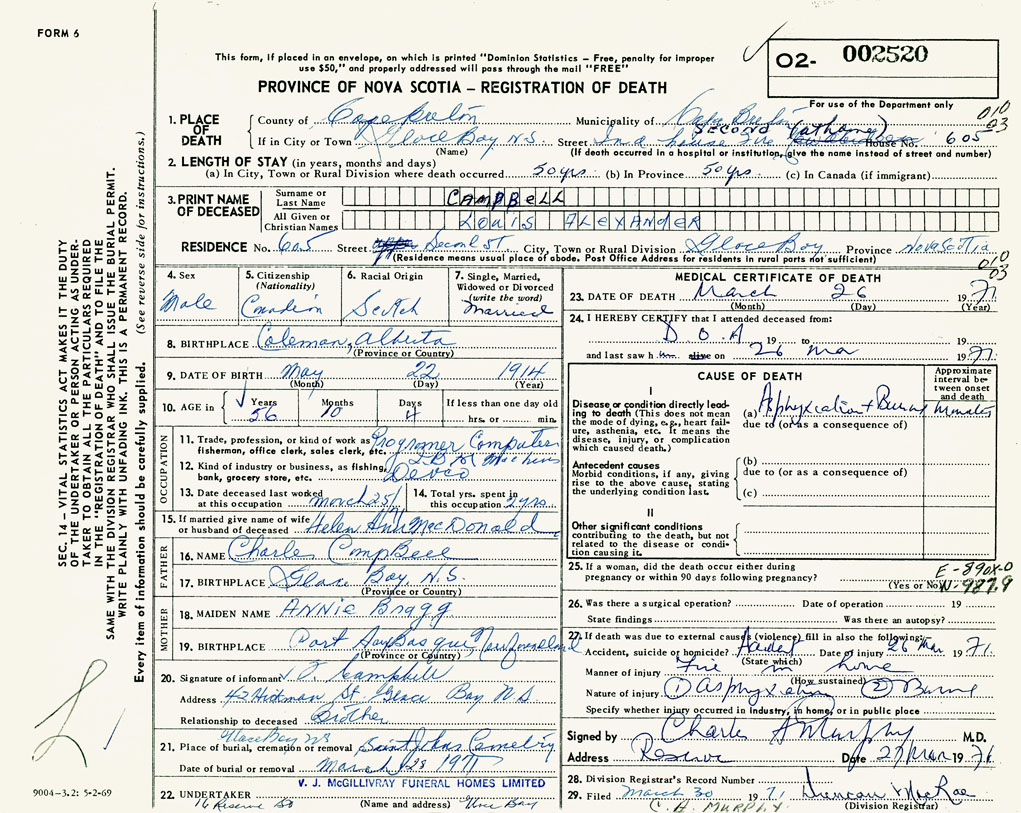 FORM 6
This form, if placed in an envelope, on which is printed "Dominion Statistics - Free, penalty for improper
use $50," and properly addressed will pass through the mail "FREE"
PROVINCE OF NOVA SCOTIA – REGISTRATION OF DEATH
O2- 002520
For use of the Department only
010
03
1. PLACE OF DEATH
County of Cape Breton Municipality of Cape Breton
SECOND
If in City or Town Glace Bay N.S. Street House No. 605
(Name) (If death occurred in a hospital or institution, give the name instead of street and number)
2. LENGTH OF STAY (in years, months and days)
(a) In City, Town or Rural Division where death occurred 50 yrs. (b) In Province 50 yrs. (c) In Canada (if immigrant)
3. PRINT NAME OF DECEASED
Surname or Last Name CAMPBELL
All Given or Christian Names LOUIS ALEXANDER
RESIDENCE No. 605 Street Second St City, Town or Rural Division Glace Bay Province Nova Scotia
(Residence means usual place of abode. Post Office Address for residents in rural parts not sufficient)
010
03
4. Sex Male
5. Citizenship (Nationality) Canadian
6. Racial Origin Scotch
7. Single, Married, Widowed or Divorced (write the word) Married
8. BIRTHPLACE Coleman, Alberta
(Province or Country)
9. DATE OF BIRTH May 22 1914
(Month) (Day) (Year)
10. AGE in Years 56 Months 10 Days 4 If less than one day old
hrs. or min.
OCCUPATION
11. Trade, profession, or kind of work as fisherman, office clerk, sales clerk, etc. Programer Computer
IBM Machines
12. Kind of industry or business, as fishing, bank, grocery store, etc. Devco
13. Date deceased last worked at this occupation March 25/71
14. Total yrs. spent in this occupation 2 yrs
15. If married give name of wife or husband of deceased Helen Ann MacDonald
FATHER
16. NAME Charles Campbell
17. BIRTHPLACE Glace Bay, N.S.
(Province or Country)
MOTHER
18. MAIDEN NAME ANNIE BRAGG
19. BIRTHPLACE Port Aux Basque Newfoundland
(Province or Country)
20. Signature of informant J. Campbell
Address 42 Hickman St. Glace Bay N.S.
Relationship to deceased Brother
Glace Bay NS
21. Place of burial, cremation or removal Saint Johns Cemetry
Date of burial or removal March 28 1971
V. J. McGILLIVRAY FUNERAL HOMES LIMITED
22. UNDERTAKER 16 Reserve St Glace Bay
(Name and address)
MEDICAL CERTIFICATE OF DEATH
23. DATE OF DEATH March 26 1971
(Month) (Day) (Year)
24. I HEREBY CERTIFY that I attended deceased from:
D.O.A 19 to
and last saw h im alive on 26 Mar 1971
CAUSE OF DEATH
Approximate interval between onset and death
I
Disease or condition directly leading to death (This does not mean the mode of dying, e.g., heart failure, asthenia, etc. It means the disease, injury, or complication which caused death.)
(a) Asphyxiation + Burns minutes
due to (or as a consequence of)
Antecedent causes
Morbid conditions, if any, giving rise to the above cause, stating the underlying condition last.
(b)
due to (or as a consequence of)
(c)
II
Other significant conditions contributing to the death, but not related to the disease or condition causing it.
25. If a woman, did the death occur either during pregnancy or within 90 days following pregnancy?
(Yes or No)
E-890X-0
N-987.9
26. Was there a surgical operation? Date of operation 19
State findings Was there an autopsy?
27. If death was due to external causes (violence) fill in also the following:
Accident, suicide or homicide? Accident Date of injury 26 Mar 1971
(State which)
Manner of injury Fire in home
(How sustained)
Nature of injury ① Asphyxiation ② Burns
Specify whether injury occurred in industry, in home, or in public place
Signed by Charles A Murphy M.D.
Address Reserve Date 27 Mar 1971
28. Division Registrar's Record Number
29. Filed March 30 1971 Duncan MacRae
(Division Registrar)
C. A. MURPHY
SEC. 14 – VITAL STATISTICS ACT MAKES IT THE DUTY
OF THE UNDERTAKER OR PERSON ACTING AS UNDER-
TAKER TO OBTAIN ALL THE PARTICULARS REQUIRED
IN THE "REGISTRATION OF DEATH" AND TO FILE THE
SAME WITH THE DIVISION REGISTRAR WHO SHALL ISSUE THE BURIAL PERMIT.
WRITE PLAINLY WITH UNFADING INK. THIS IS A PERMANENT RECORD.
Every item of information should be carefully supplied. (See reverse side for instructions.)
9004-3.2: 5-2-69